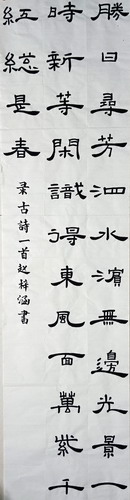 勝日尋芳泗水濱無邊光景一
時新等閑識得東風面萬紫千
紅總是春
录古詩一首赵梓涵書